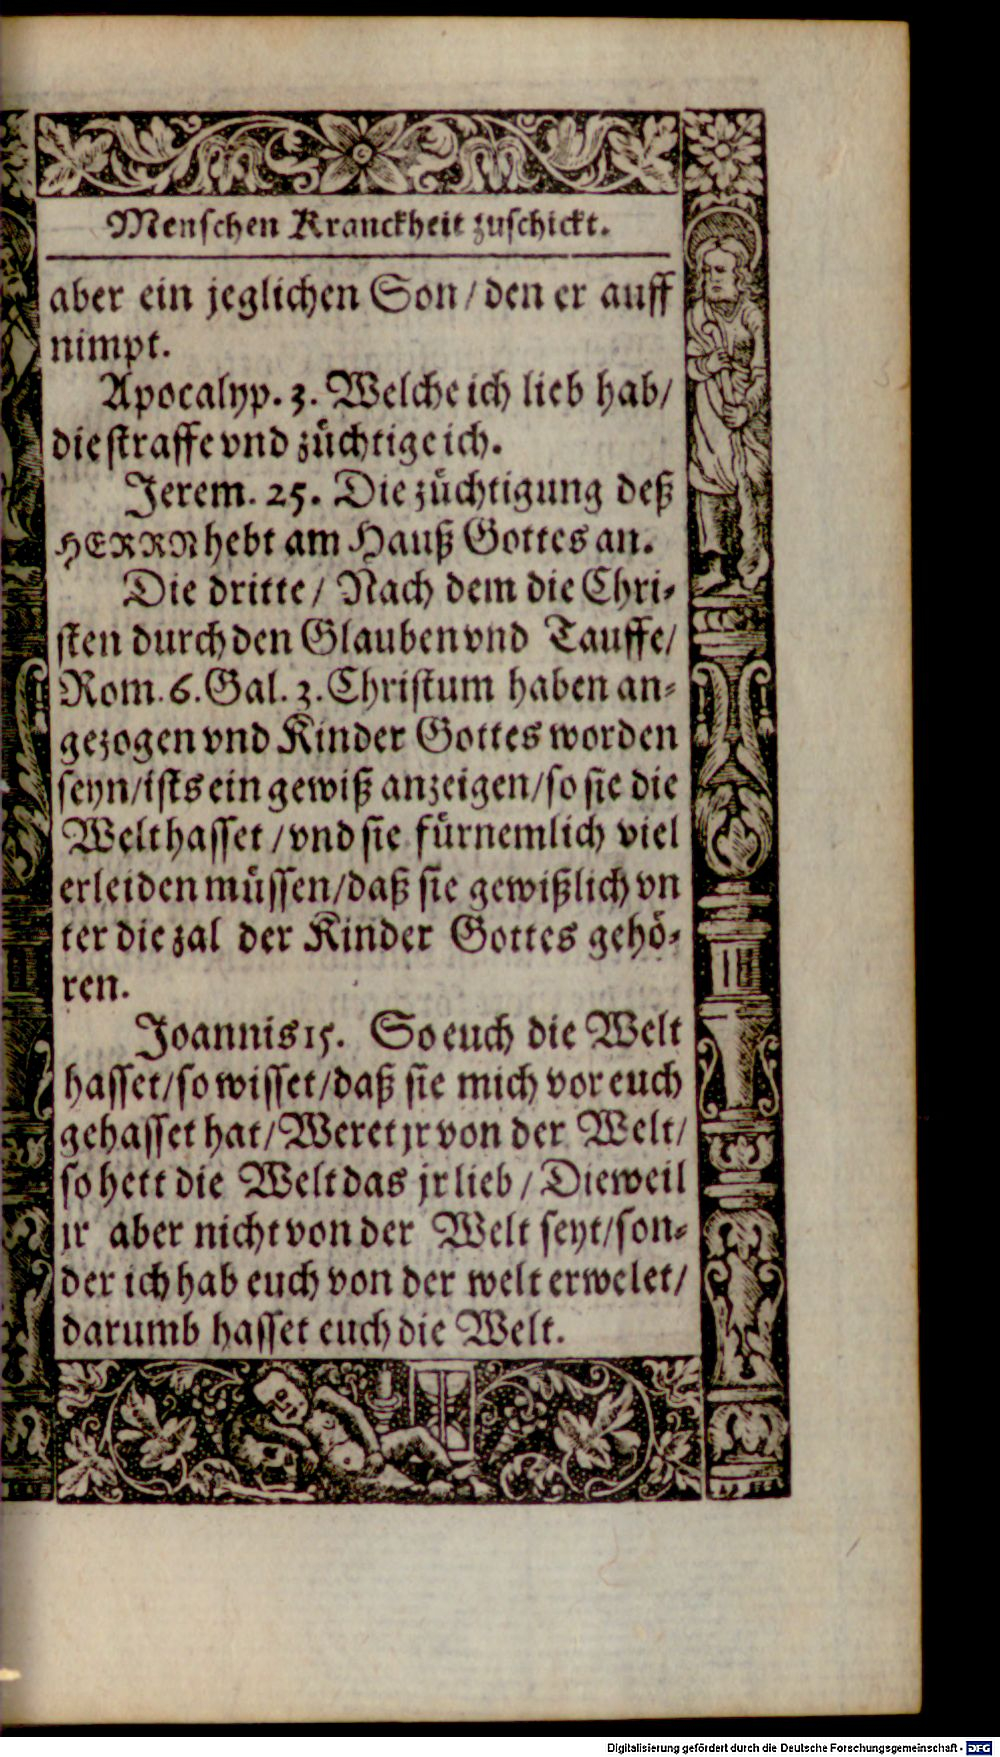 Menschen Kranckheit zuschickt.
aber ein jeglichen Son / den er auff
nimpt.
Apocalyp. 3. Welche ich lieb hab /
die straffe vnd züchtige ich.
Jerem. 25. Die züchtigung deß
HERRN hebt am Hauß Gottes an.
Die dritte / Nach dem die Chri-
sten durch den Glauben vnd Tauffe /
Rom. 6. Gal. 3. Christum haben an-
gezogen vnd Kinder Gottes worden
seyn / ists ein gewiß anzeigen / so sie die
Welt hasset / vnd sie fürnemlich viel
erleiden müssen / daß sie gewißlich vn
ter die zal der Kinder Gottes gehö-
ren.
Joannis 15. So euch die Welt
hasset / so wisset / daß sie mich vor euch
gehasset hat / Weret jr von der Welt /
so hett die Welt das jr lieb / Dieweil
ir aber nicht von der Welt seyt / son-
der ich hab euch von der welt erwelet /
darumb hasset euch die Welt.
Digitalisierung gefördert durch die Deutsche Forschungsgemeinschaft - DFG